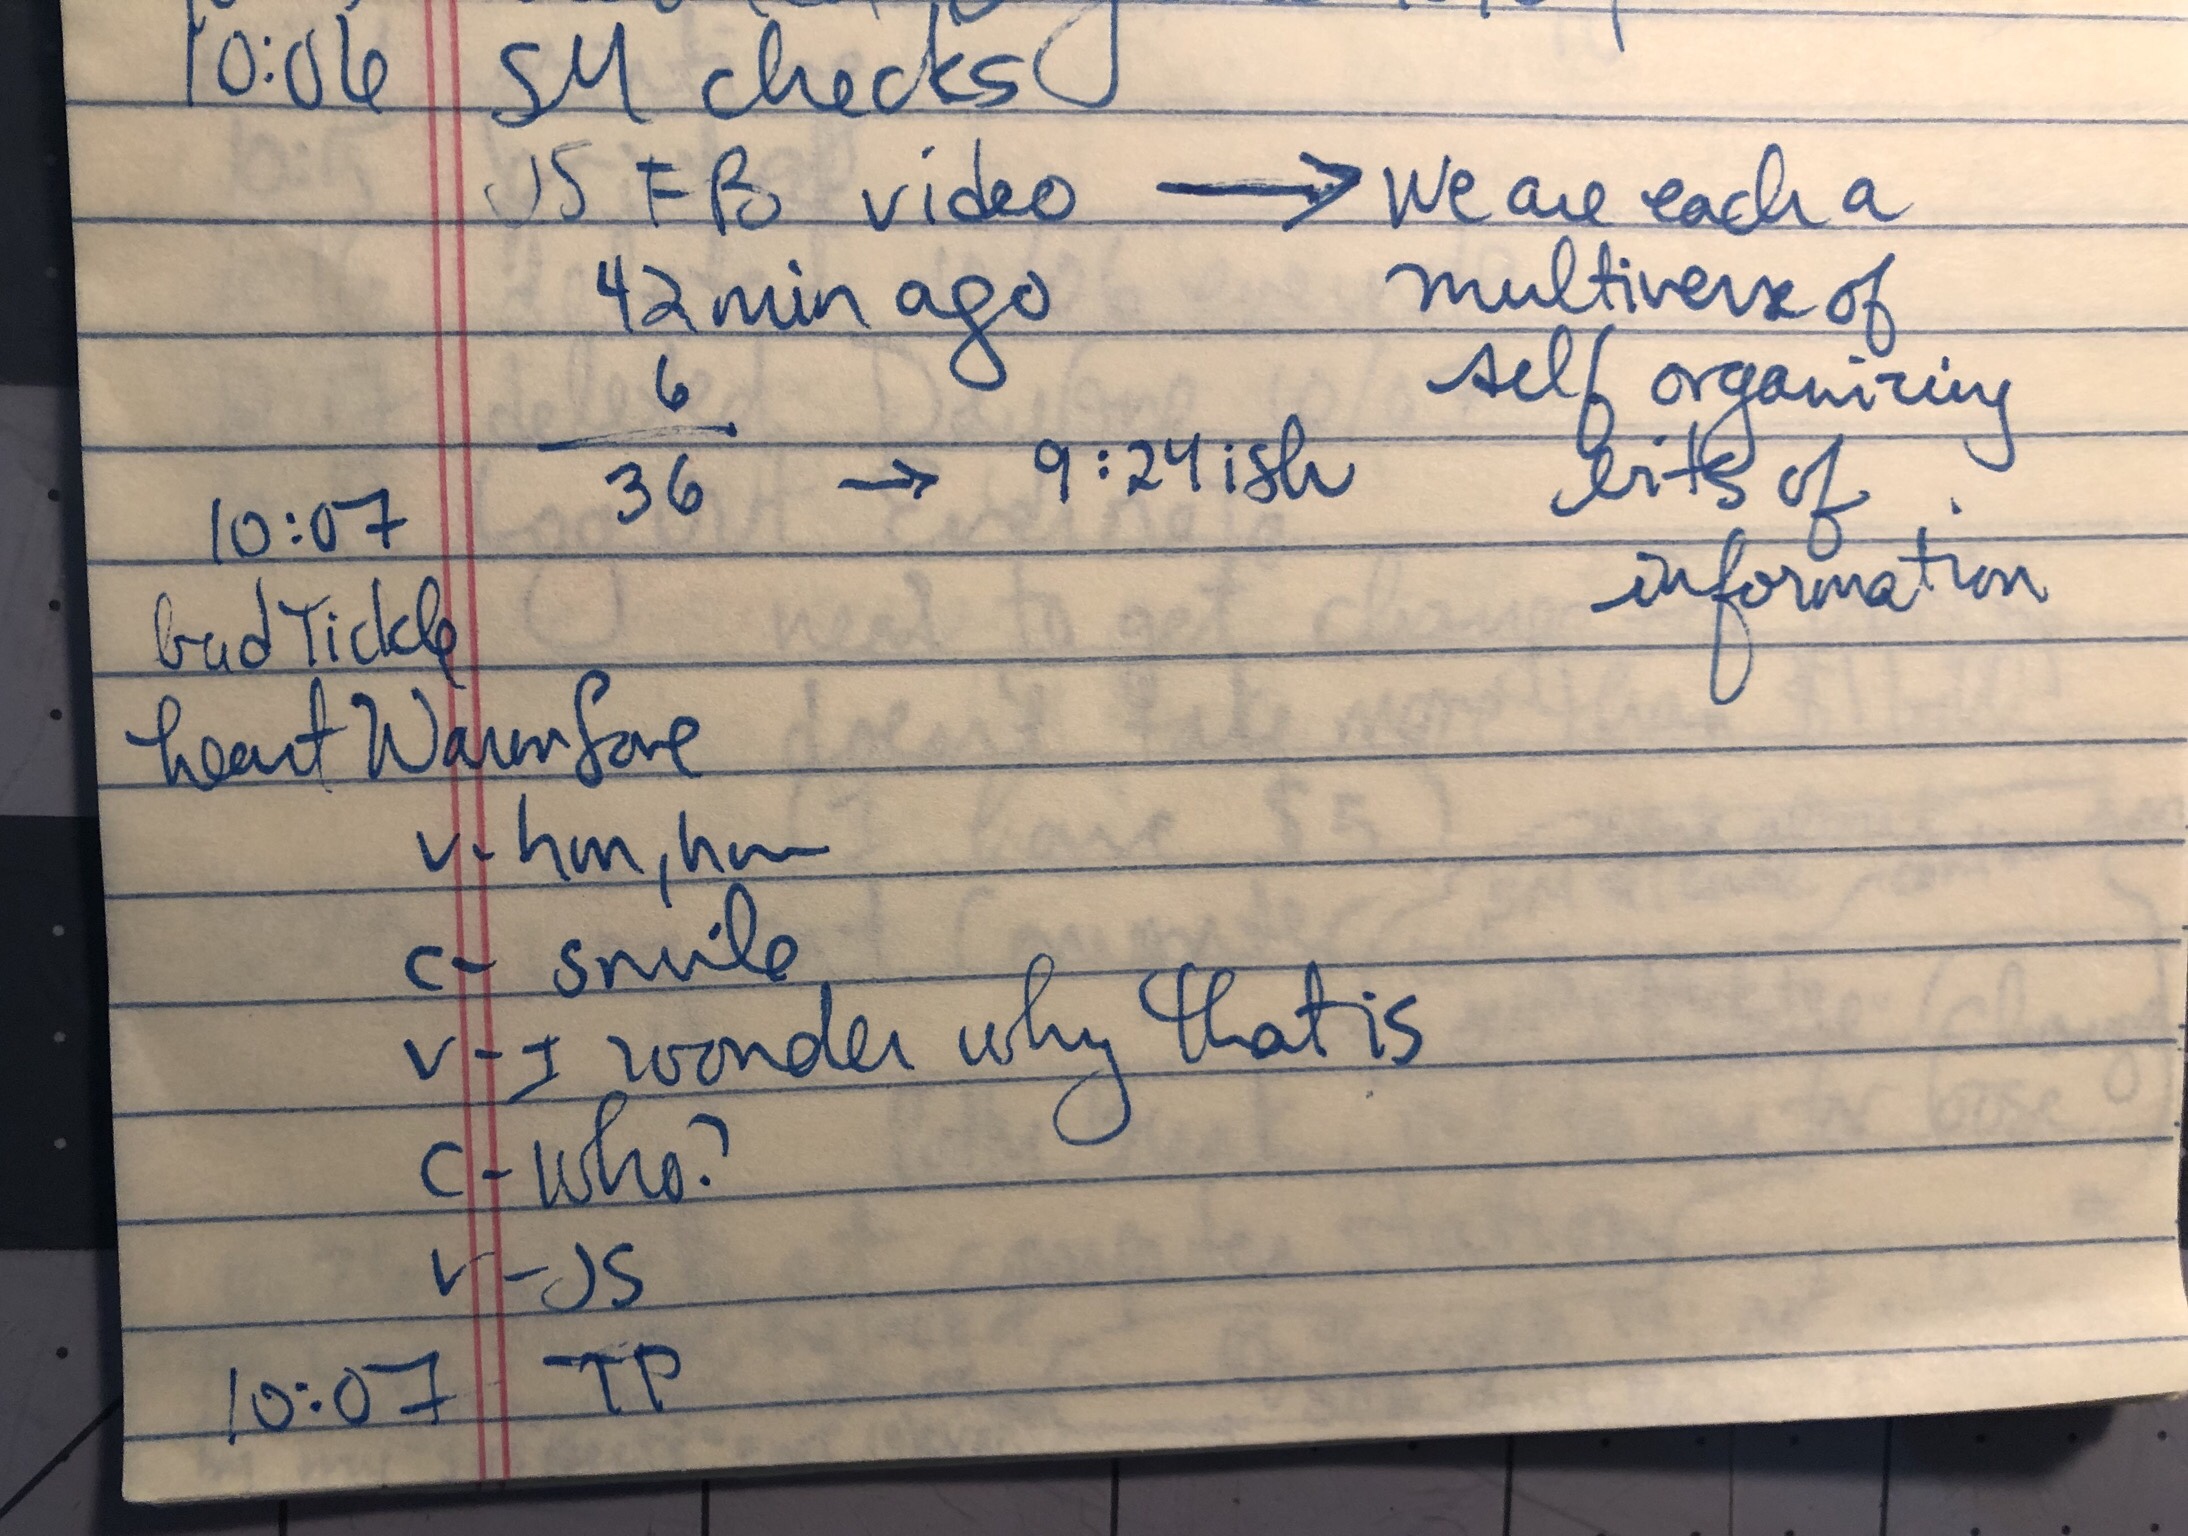 10:06 SM checks
JS FB video → We are each a
42 min ago multiverse of
6 self organizing
36 → 9:24ish bits of
10:07 information
bud Tickle
heart Warm fone
v- hm, hm
c- smile
v- I wonder why that is
c- who?
v- JS
10:07 TP